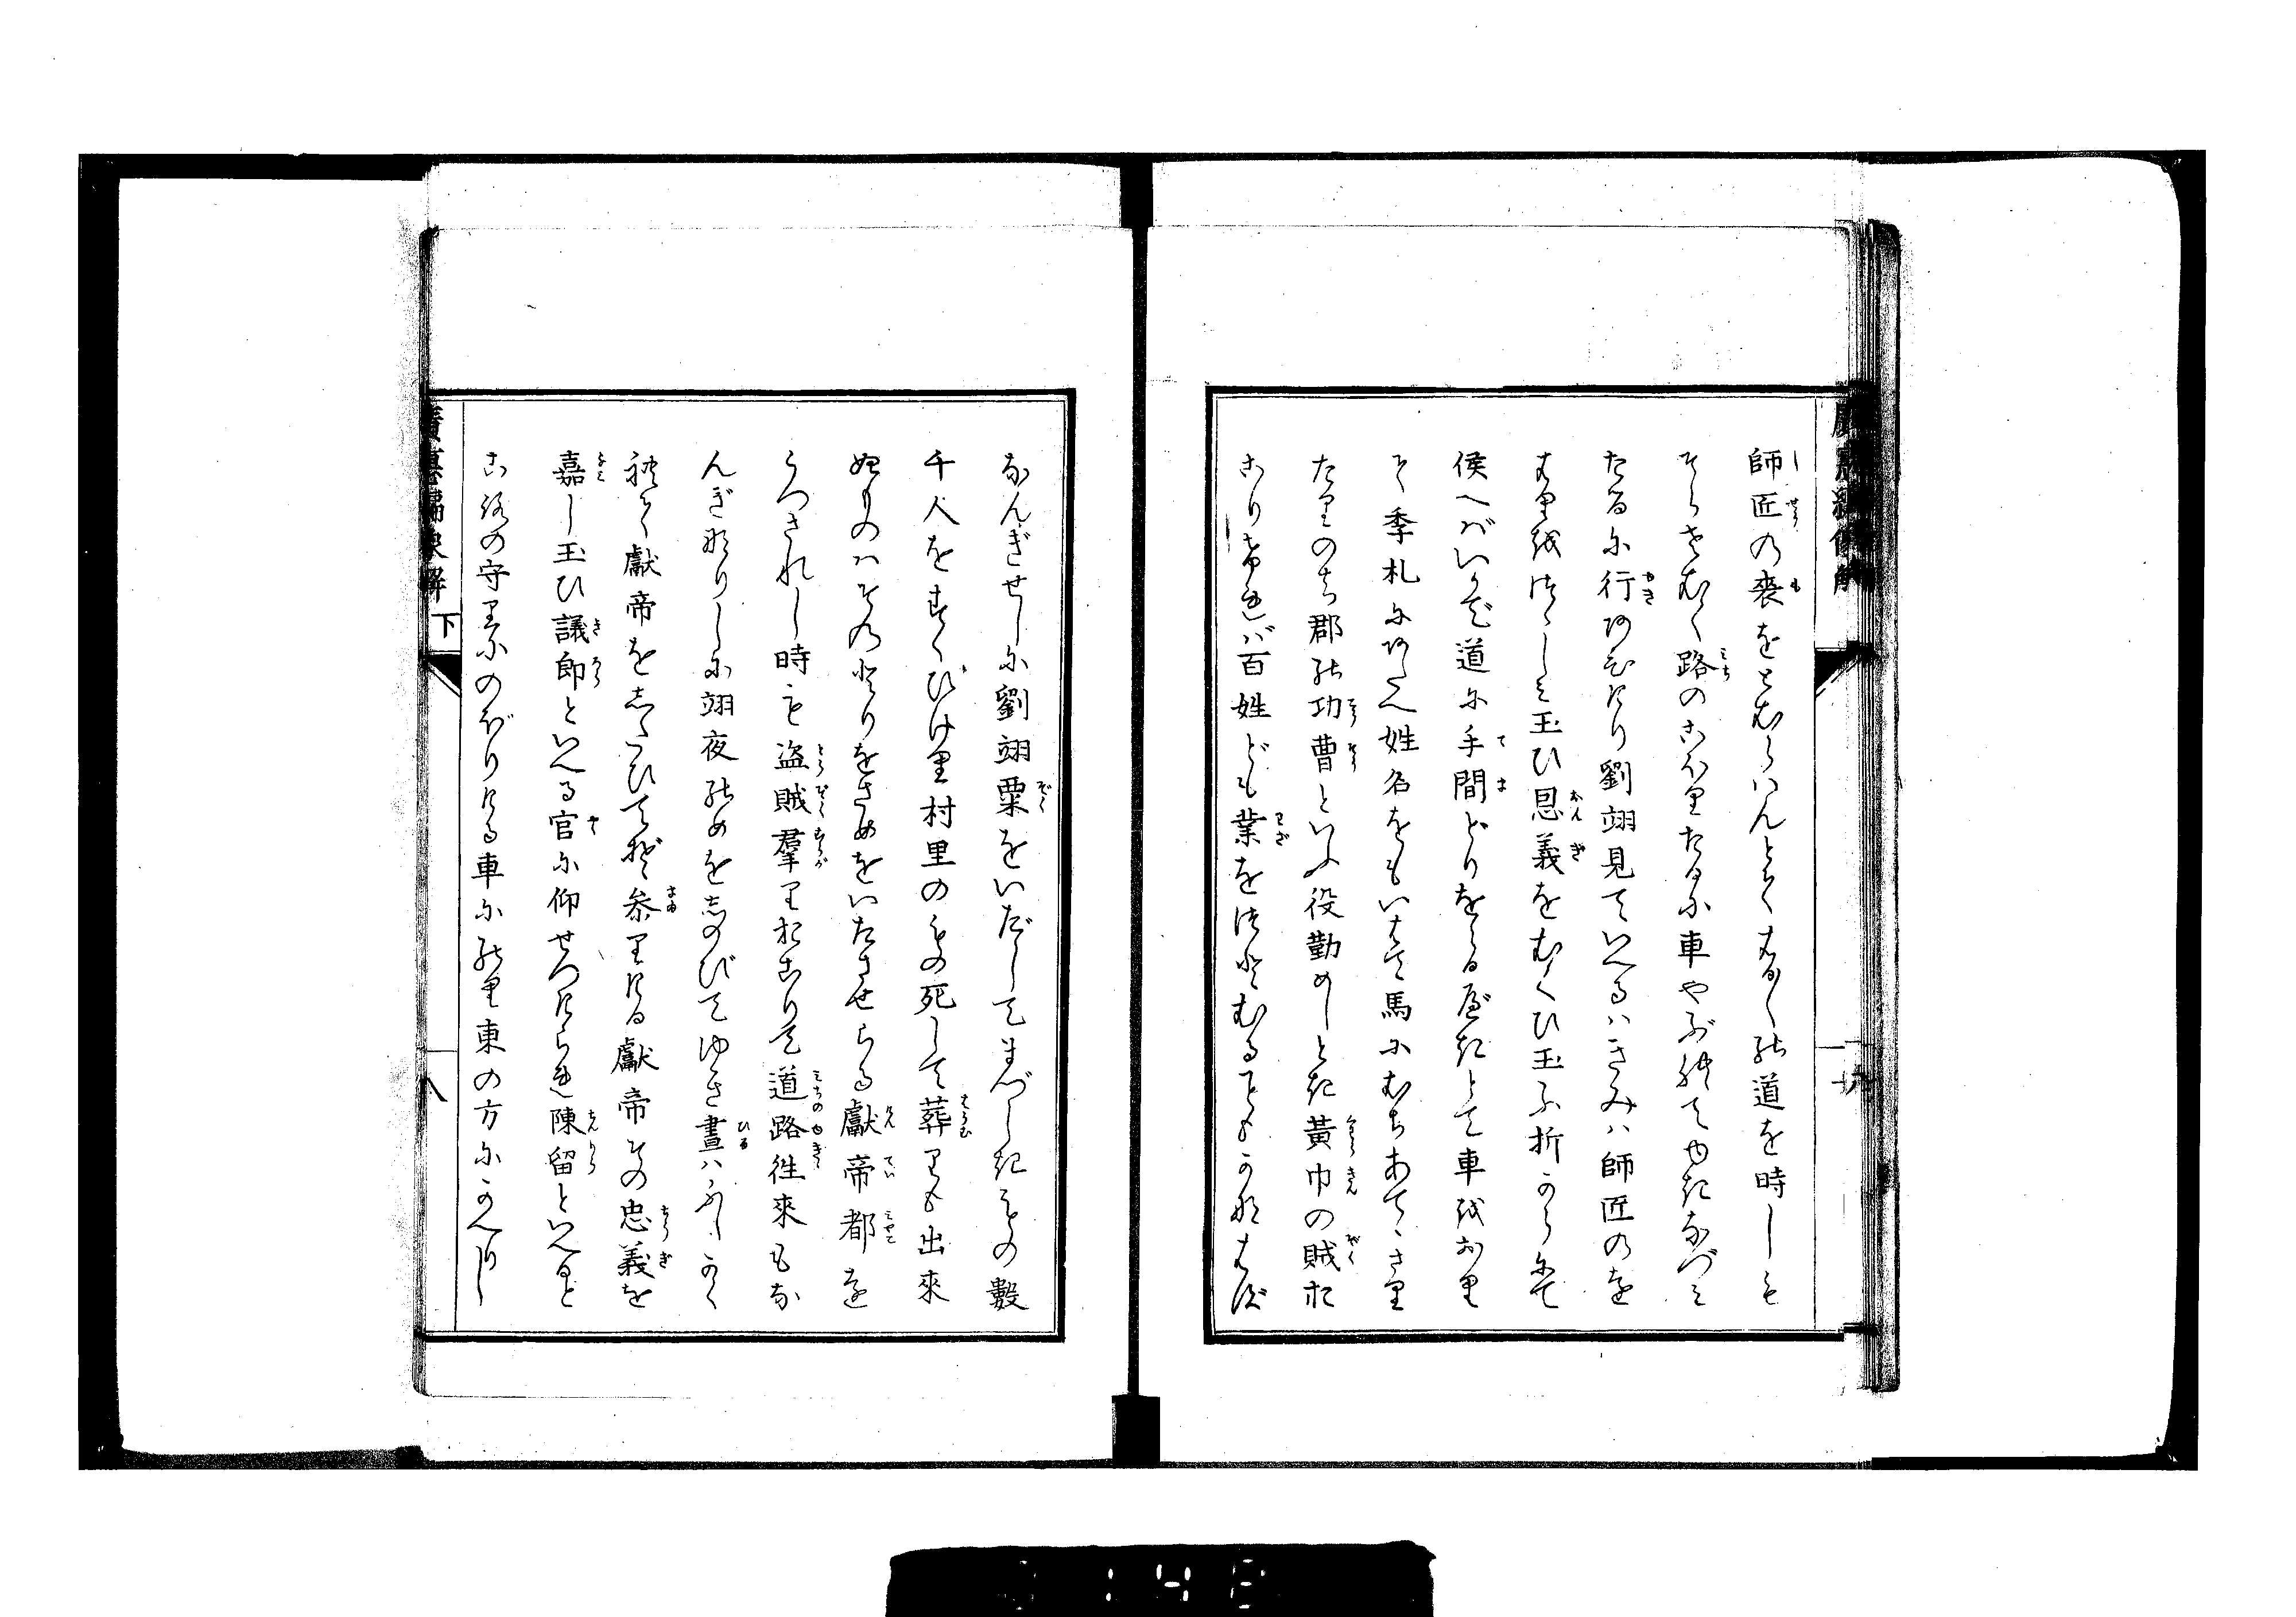 師匠の喪をとむらはんとてはる〳〵の道を時しも
そらさむく路のこほりたるに車やぶれてゆきなづみ
たるに行あひけり劉翊見ていへるはきみは師匠のを
はりをつゝしみ玉ひ恩義をむくひ玉ふ折からにて
侯へばいかで道に手間どりをらるべきとて車をおり
て季札にあたへ姓名をもいはで馬にむちあてゝさり
たりのち郡の功曹といふ役勤めしとき黄巾の賊お
こりければ百姓ども業をつとむることもかなはず
なんぎせしに劉翊粟をいだしてまづしきもの數
千人をすくひけり村里のもの死して葬りも出來
ぬものはそのとりをさめをいたさせらる獻帝都を
うつされし時も盗賊羣りおこりて道路徃來もな
んぎなりしに翊夜のめをしのびてゆき晝はふしかく
れて獻帝をしたひてぞ參りける獻帝その忠義を
嘉し玉ひ議郎といへる官に仰せつけられ陳留といへると
ころの守りにのぼりける車にのり東の方にかへりし
下
八